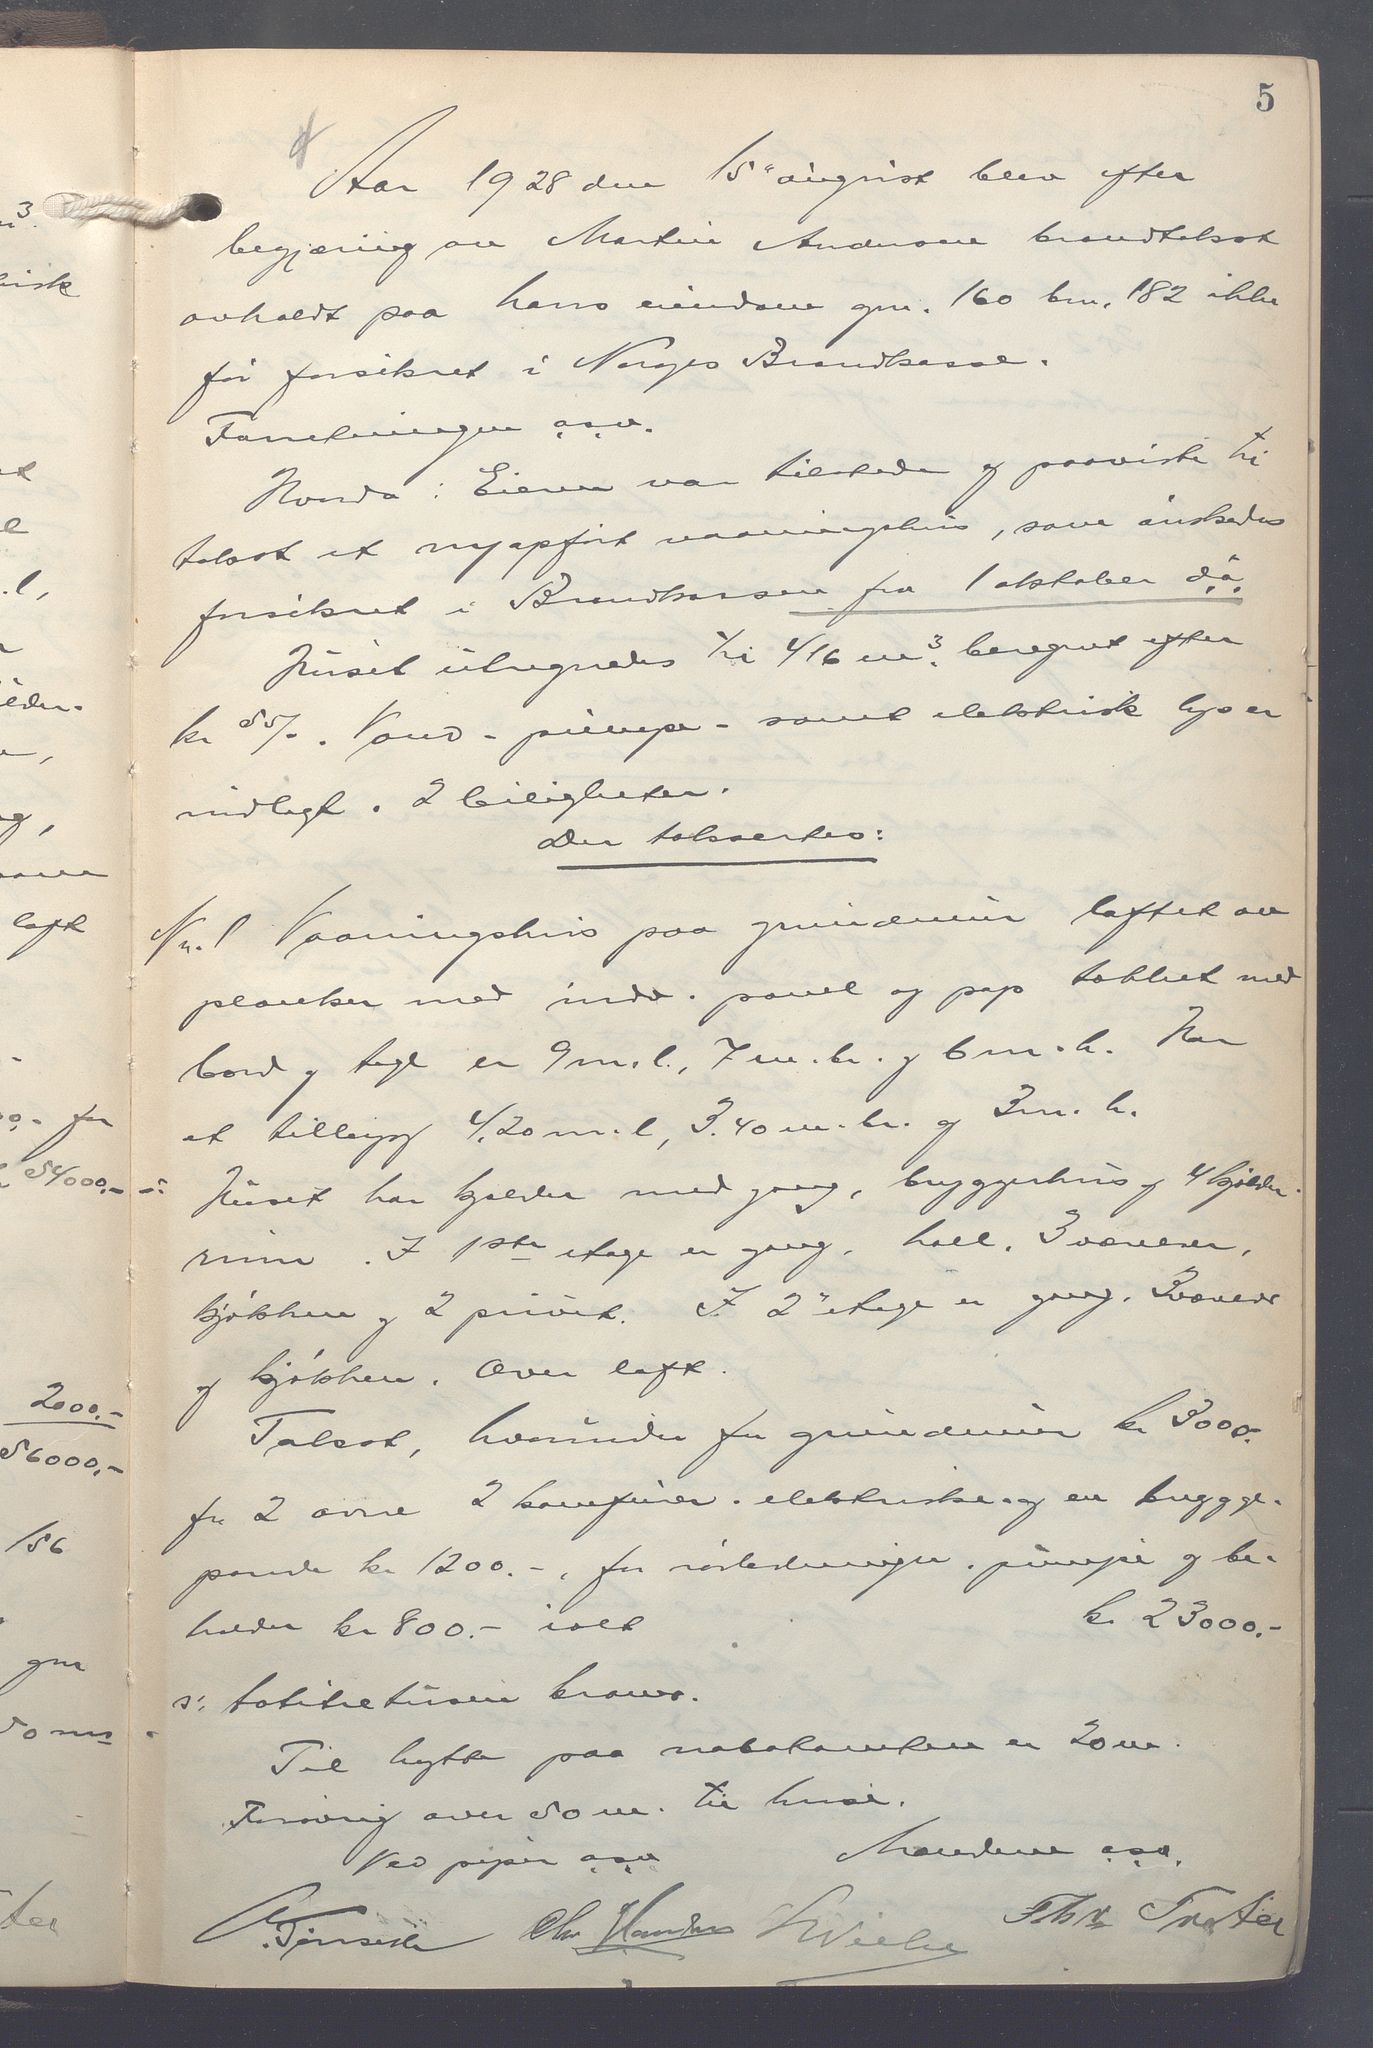 5
Aar 1928 den 15" august blev efter
begjæring av Martin Andersen brandtakst
avholdt paa hans eiendom gnr. 160 bnr. 182 ikke
før forsikret i Norges Brandkasse.
Forretningen o.s.v.
Hvorda: Eieren var tilstede og paaviste til
takst et nyopført vaaningshus, som ønskedes
forsikret i Brandkassen fra 1 oktober d.å.
Huset utregnedes til 416 m3. beregnet efter
kr 55/-. Vand - pumpe - samt elektrisk lys er
indlagt. 2 leiligheter.
Der taksertes:
Nr. 1 Vaaningshus paa grundmur laftet av
planker med indv. panel og pap tækket med
bord og tegl er 9 m. l., 7 m. br. og 6 m. h. Har
et tillegg 4,20 m. l, 3.40 m. br. og 3 m. h.
Huset har kjelder med gang, bryggerhus og 4 kjelder-
rum. I 1ste etage er gang, hall, 3 værelser,
kjøkken og 2 privet. I 2" etage er gang, 3 værelser
og kjøkken. Over loft.
Takst, hvorunder for grundmur kr 3000.-
for 2 ovne 2 komfurer - elektriske - og en brygge-
pande kr 1200.-, for rørledninger, pumpe og be-
holder kr 800.- ialt kr 23000.-
s: totitretusen kroner.
Til hytte paa nabotomten er 20 m.
Forøvrig over 50 m. til huse.
Ved piper o.s.v. Mændene o.s.v.
3.
et
l,
loft
for
54000,- s:
2000.-
56000,-
156
gnr
50 m